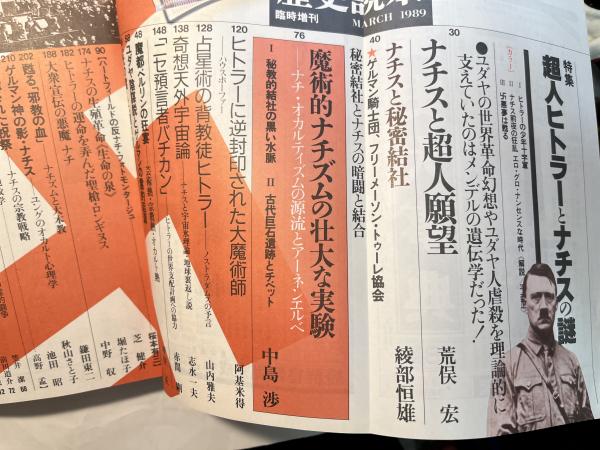 歴史読本
臨時増刊
MARCH 1989
特集
超人ヒトラーとナチスの謎
[カラー]
Ⅰ ヒトラーの少年十字軍
Ⅱ ナチス前夜の狂乱 エロ・グロ・ナンセンスな時代
Ⅲ 卐悪夢は甦る
●ユダヤの世界革命幻想やユダヤ人虐殺を理論的に
支えていたのはメンデルの遺伝学だった!
30
ナチスと超人願望
荒俣 宏
40
ナチスと秘密結社
綾部恒雄
★ゲルマン騎士団、フリーメーソン・トゥーレ協会
秘密結社とナチスの暗闘と結合
76
魔術的ナチズムの壮大な実験
中島 渉
――ナチ・オカルティズムの源流とアーネンエルベ
Ⅰ 秘教的結社の黒い水脈 Ⅱ 古代巨石遺跡とチベット
120
ヒトラーに逆封印された大魔術師
阿基米得
ハウスホーファー
128
占星術の背教徒ヒトラー
ノストラダムスの予言
山内雅夫
138
奇想天外宇宙論
ナチスと宇宙氷理論・地球裏返し説
志水一夫
148
「ニセ預言者バチカン」
ヒトラーの世界支配計画への協力
48
魔都ベルリンの狂宴
桜本
芝 健介
堀たほ子
90
ハートフィールドの反ナチ・フォトモンタージュ
中野 収
174
ナチスの生殖革命〈生命の泉〉
鎌田東二
182
ヒトラーの運命を弄んだ聖槍ロンギヌス
秋山さと子
188
大衆宣伝の悪魔 ナチ
池田 昭
202
甦る「邪教の血」
ユングのオカルト心理学
高野 孟
210
ゲルマン神の影・ナチス
ナチズムと天木教
ナチスの宗教戦略